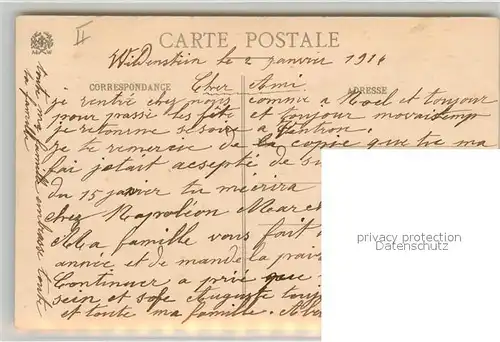 II
CARTE POSTALE
Wildenstein le 2 janvier 1916
CORRESPONDANCE
ADRESSE
Cher Ami
je rentré chez comme a Noel et toujour
pour passé les fête et toujour movaitemp
je retourne se soir a Ventron.
je te remercie de la copie que tu ma
fai jetait acsepté de
du 15 janvier tu mécrira
chez Napoléon
Ma famille vous fait
année et de mandé la
Continuer a privé que
sein et Auguste
et toute ma famille.
toute ma famille embrasse toute
ta famille
privacy protection
Datenschutz